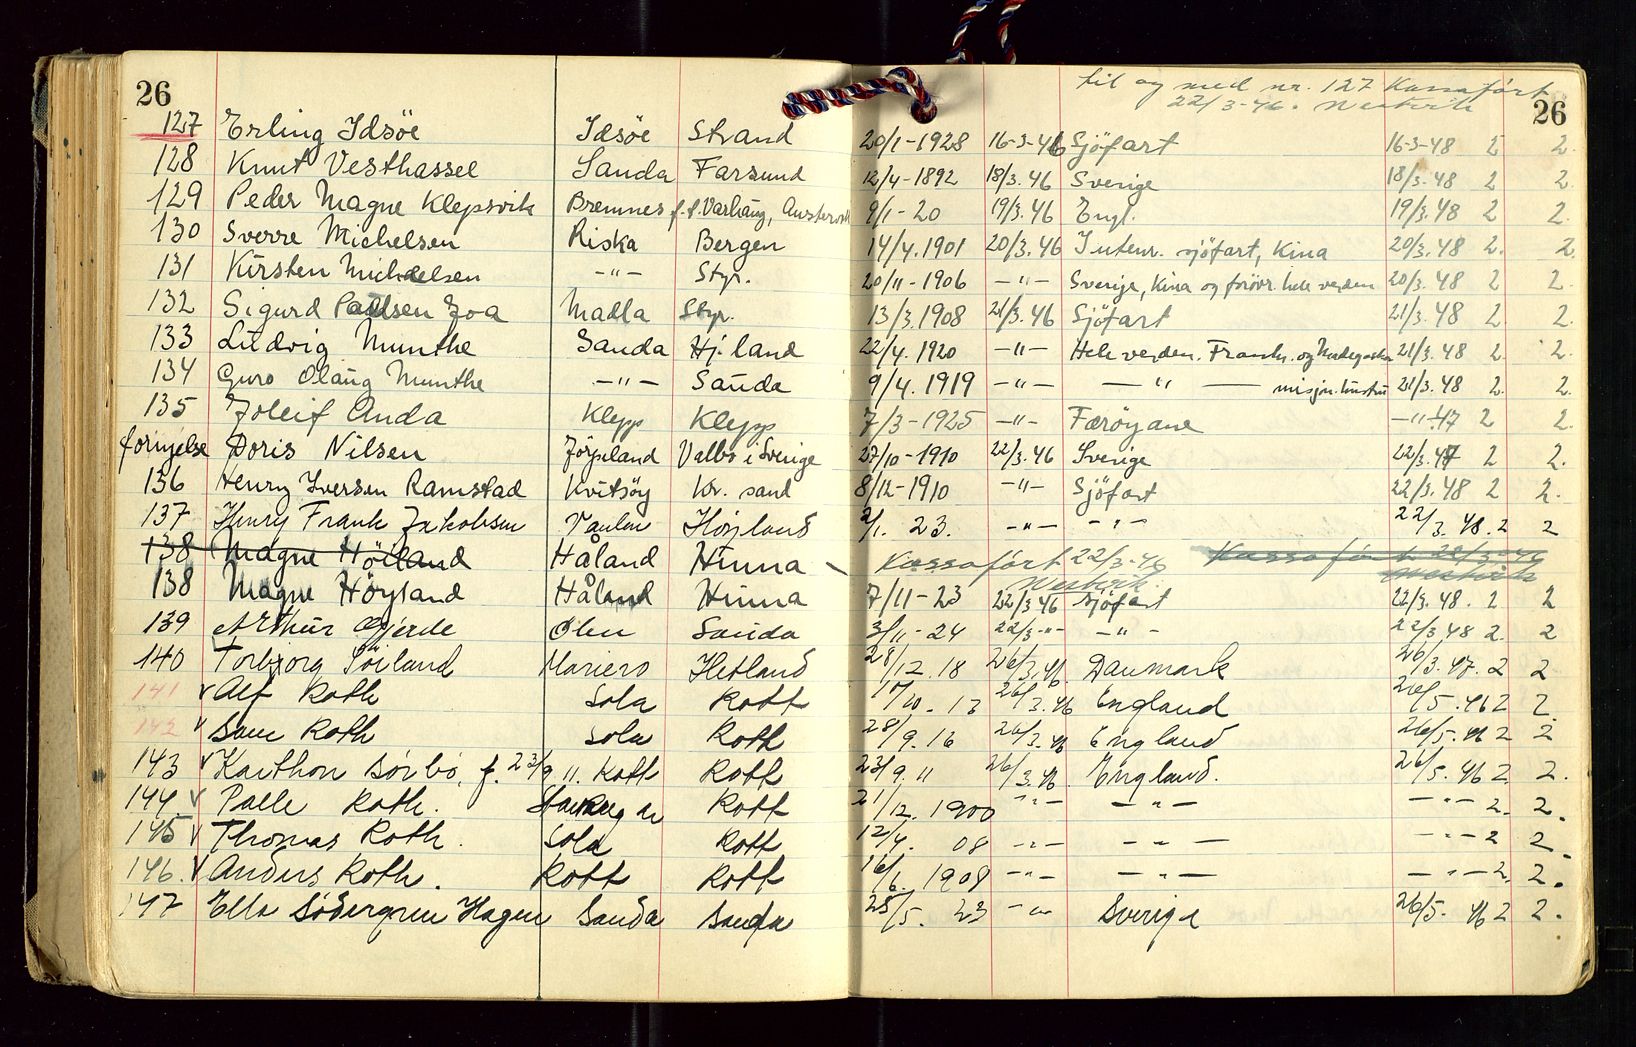 26 til og med nr. 127 Kassaført 26
22/3-46. Westvik
127 Erling Idsöe Idsöe Strand 20/1-1928 16-3-46 Sjöfart 16-3-48 2 2.
128 Knut Vesthassel Sanda Farsund 12/4-1892 18/3.46 Sverige 18/3.48 2 2.
129 Peder Magne Klepsvik Bremnes f.f. Varhaug, 9/1-20 19/3.46 Engl. 19/3.48 2 2.
130 Sverre Michelsen Riska Bergen 14/4.1901 20/3.46 Intenr. sjöfart, Kina 20/3.48 2. 2.
131 Kirsten Michaelsen -"- Styr. 20/11-1906 -"- Sverige, Kina og forövr. hele verden 20/3.48 2 2.
132 Sigurd Paulsen Zoa Madla Styr. 13/3.1908 21/3.46 Sjöfart 21/3.48 2. 2.
133 Ludvig Munthe Sanda Hj.land 22/4.1920 -"- Hele verden. Frankr. og Madagaskar 21/3.48 2. 2.
134 Guro Olaug Munthe -"- Sauda 9/4.1919 -"- -"- misjn. hustru 21/3.48 2. 2.
135 Tolleif Anda Klepp Klepp 7/3-1925 -"- Færöyane -"-.47 2 2.
fornyelse Doris Nilsen Jörpeland Valbo i Sverige 27/10-1910 22/3.46 Sverige 22/3.47 2 2.
136 Henry Iversen Ramstad Kvitsöy Kr. sand 8/12-1910 -"- Sjöfart 22/3.48 2 2.
137 Henry Frank Jakobsen Vaulen Höyland 2/1. 23. -"- -"- 22/3.48.2 2
138 Magne Höiland Håland Hinna Kassaført 22/3-46 Kassafört 22/3-46
Westvik Westvik
138 Magne Höyland Håland Hinna 7/11-23 22/3 46 Sjöfart 22/3.48. 2 2
139 Arthur Gjerde Ölen Sauda 3/11-24 22/3-"- -"- 22/3 48 2. 2
140 Torbjörg Söiland Mariero Hetland 28/12.18 26/3.46. Danmark 26/3.47.2 2
141 v Alf Roth Sola Rott 17/10.13 26/3.46 England 26/5.46 2 2.
142 v Sam Roth Sola Rott 28/9.16 26/3.46 England 26/5.46 2 2
143 v Karthon Sörbö, f. 23/9 11. Rott Rott 23/9.11 26/3.46. England. 26/5.46 2. 2.
144 v Palle Roth. Rott 21/12.1900 -"- -"- -"- 2. 2.
145 v Thomas Roth. Sola Rott 12/4. 08 -"- -"- -"- 2 2.
146. v Anders Roth. Rott Rott 16/6.1909 -"- -"- -"- 2. 2.
147 Ella Södergren Hagen Sanda Sanda 25/5. 23 -"- Sverige 26/5. 46 2 2.